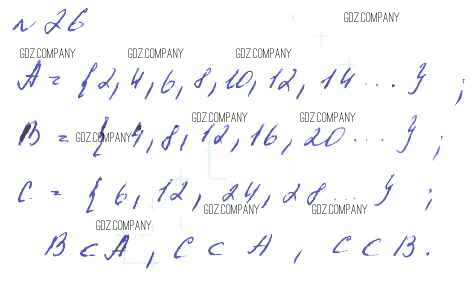 № 26
GDZ.COMPANY
GDZ.COMPANY GDZ.COMPANY GDZ.COMPANY
A = {2, 4, 6, 8, 10, 12, 14 ... } ;
GDZ.COMPANY GDZ.COMPANY
B = { 4, 8, 12, 16, 20 ... } ;
GDZ.COMPANY
C = { 6, 12, 24, 28 ... } ;
GDZ.COMPANY GDZ.COMPANY
GDZ.COMPANY
B ⊂ A , C ⊂ A , C ⊂ B .